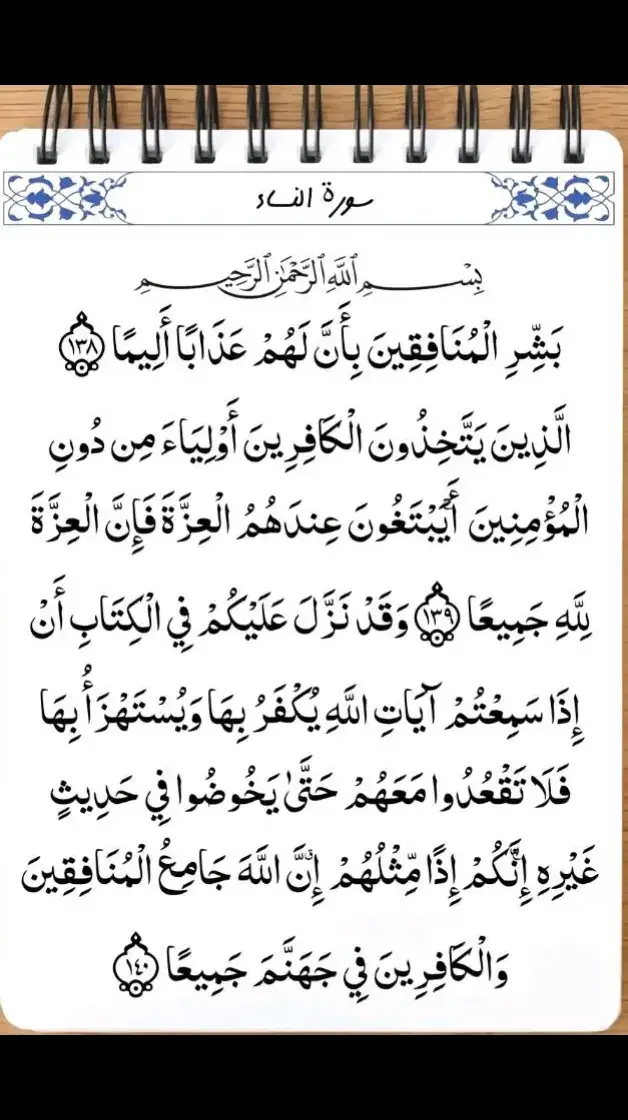 سورة النساء
بِسْمِ اللَّهِ الرَّحْمَٰنِ الرَّحِيمِ
بَشِّرِ الْمُنَافِقِينَ بِأَنَّ لَهُمْ عَذَابًا أَلِيمًا ١٣٨
الَّذِينَ يَتَّخِذُونَ الْكَافِرِينَ أَوْلِيَاءَ مِن دُونِ
الْمُؤْمِنِينَ أَيَبْتَغُونَ عِندَهُمُ الْعِزَّةَ فَإِنَّ الْعِزَّةَ
لِلَّهِ جَمِيعًا ١٣٩ وَقَدْ نَزَّلَ عَلَيْكُمْ فِي الْكِتَابِ أَنْ
إِذَا سَمِعْتُمْ آيَاتِ اللَّهِ يُكْفَرُ بِهَا وَيُسْتَهْزَأُ بِهَا
فَلَا تَقْعُدُوا مَعَهُمْ حَتَّىٰ يَخُوضُوا فِي حَدِيثٍ
غَيْرِهِ إِنَّكُمْ إِذًا مِّثْلُهُمْ إِنَّ اللَّهَ جَامِعُ الْمُنَافِقِينَ
وَالْكَافِرِينَ فِي جَهَنَّمَ جَمِيعًا ١٤٠